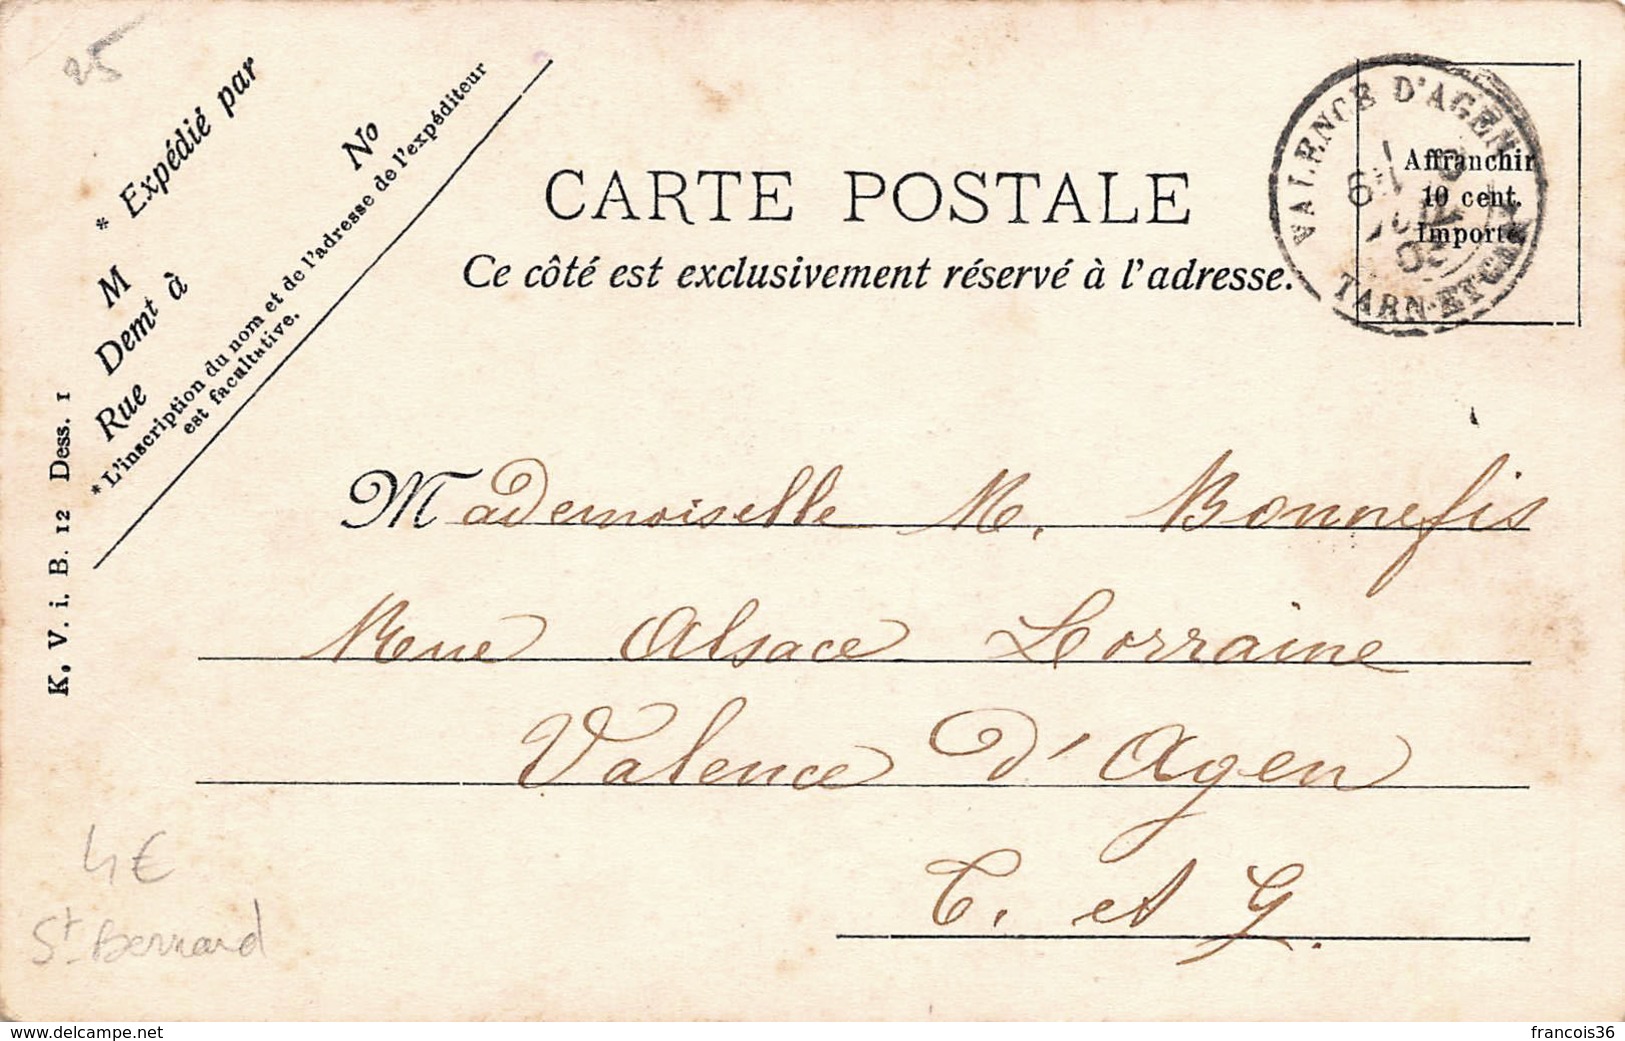 25
* Expédié par
M
No
Demt à
Rue
* L'inscription du nom et de l'adresse de l'expéditeur
est facultative.
K. V. i. B. 12 Dess. 1
CARTE POSTALE
Ce côté est exclusivement réservé à l'adresse.
VALENCE D'AGEN
TARN-ET-
Affranchir
10 cent.
Importé
Mademoiselle M. Bonnefis
Rue Alsace Lorraine
Valence d'Agen
T. et G.
4€
St Bernard
www.delcampe.net
francois36